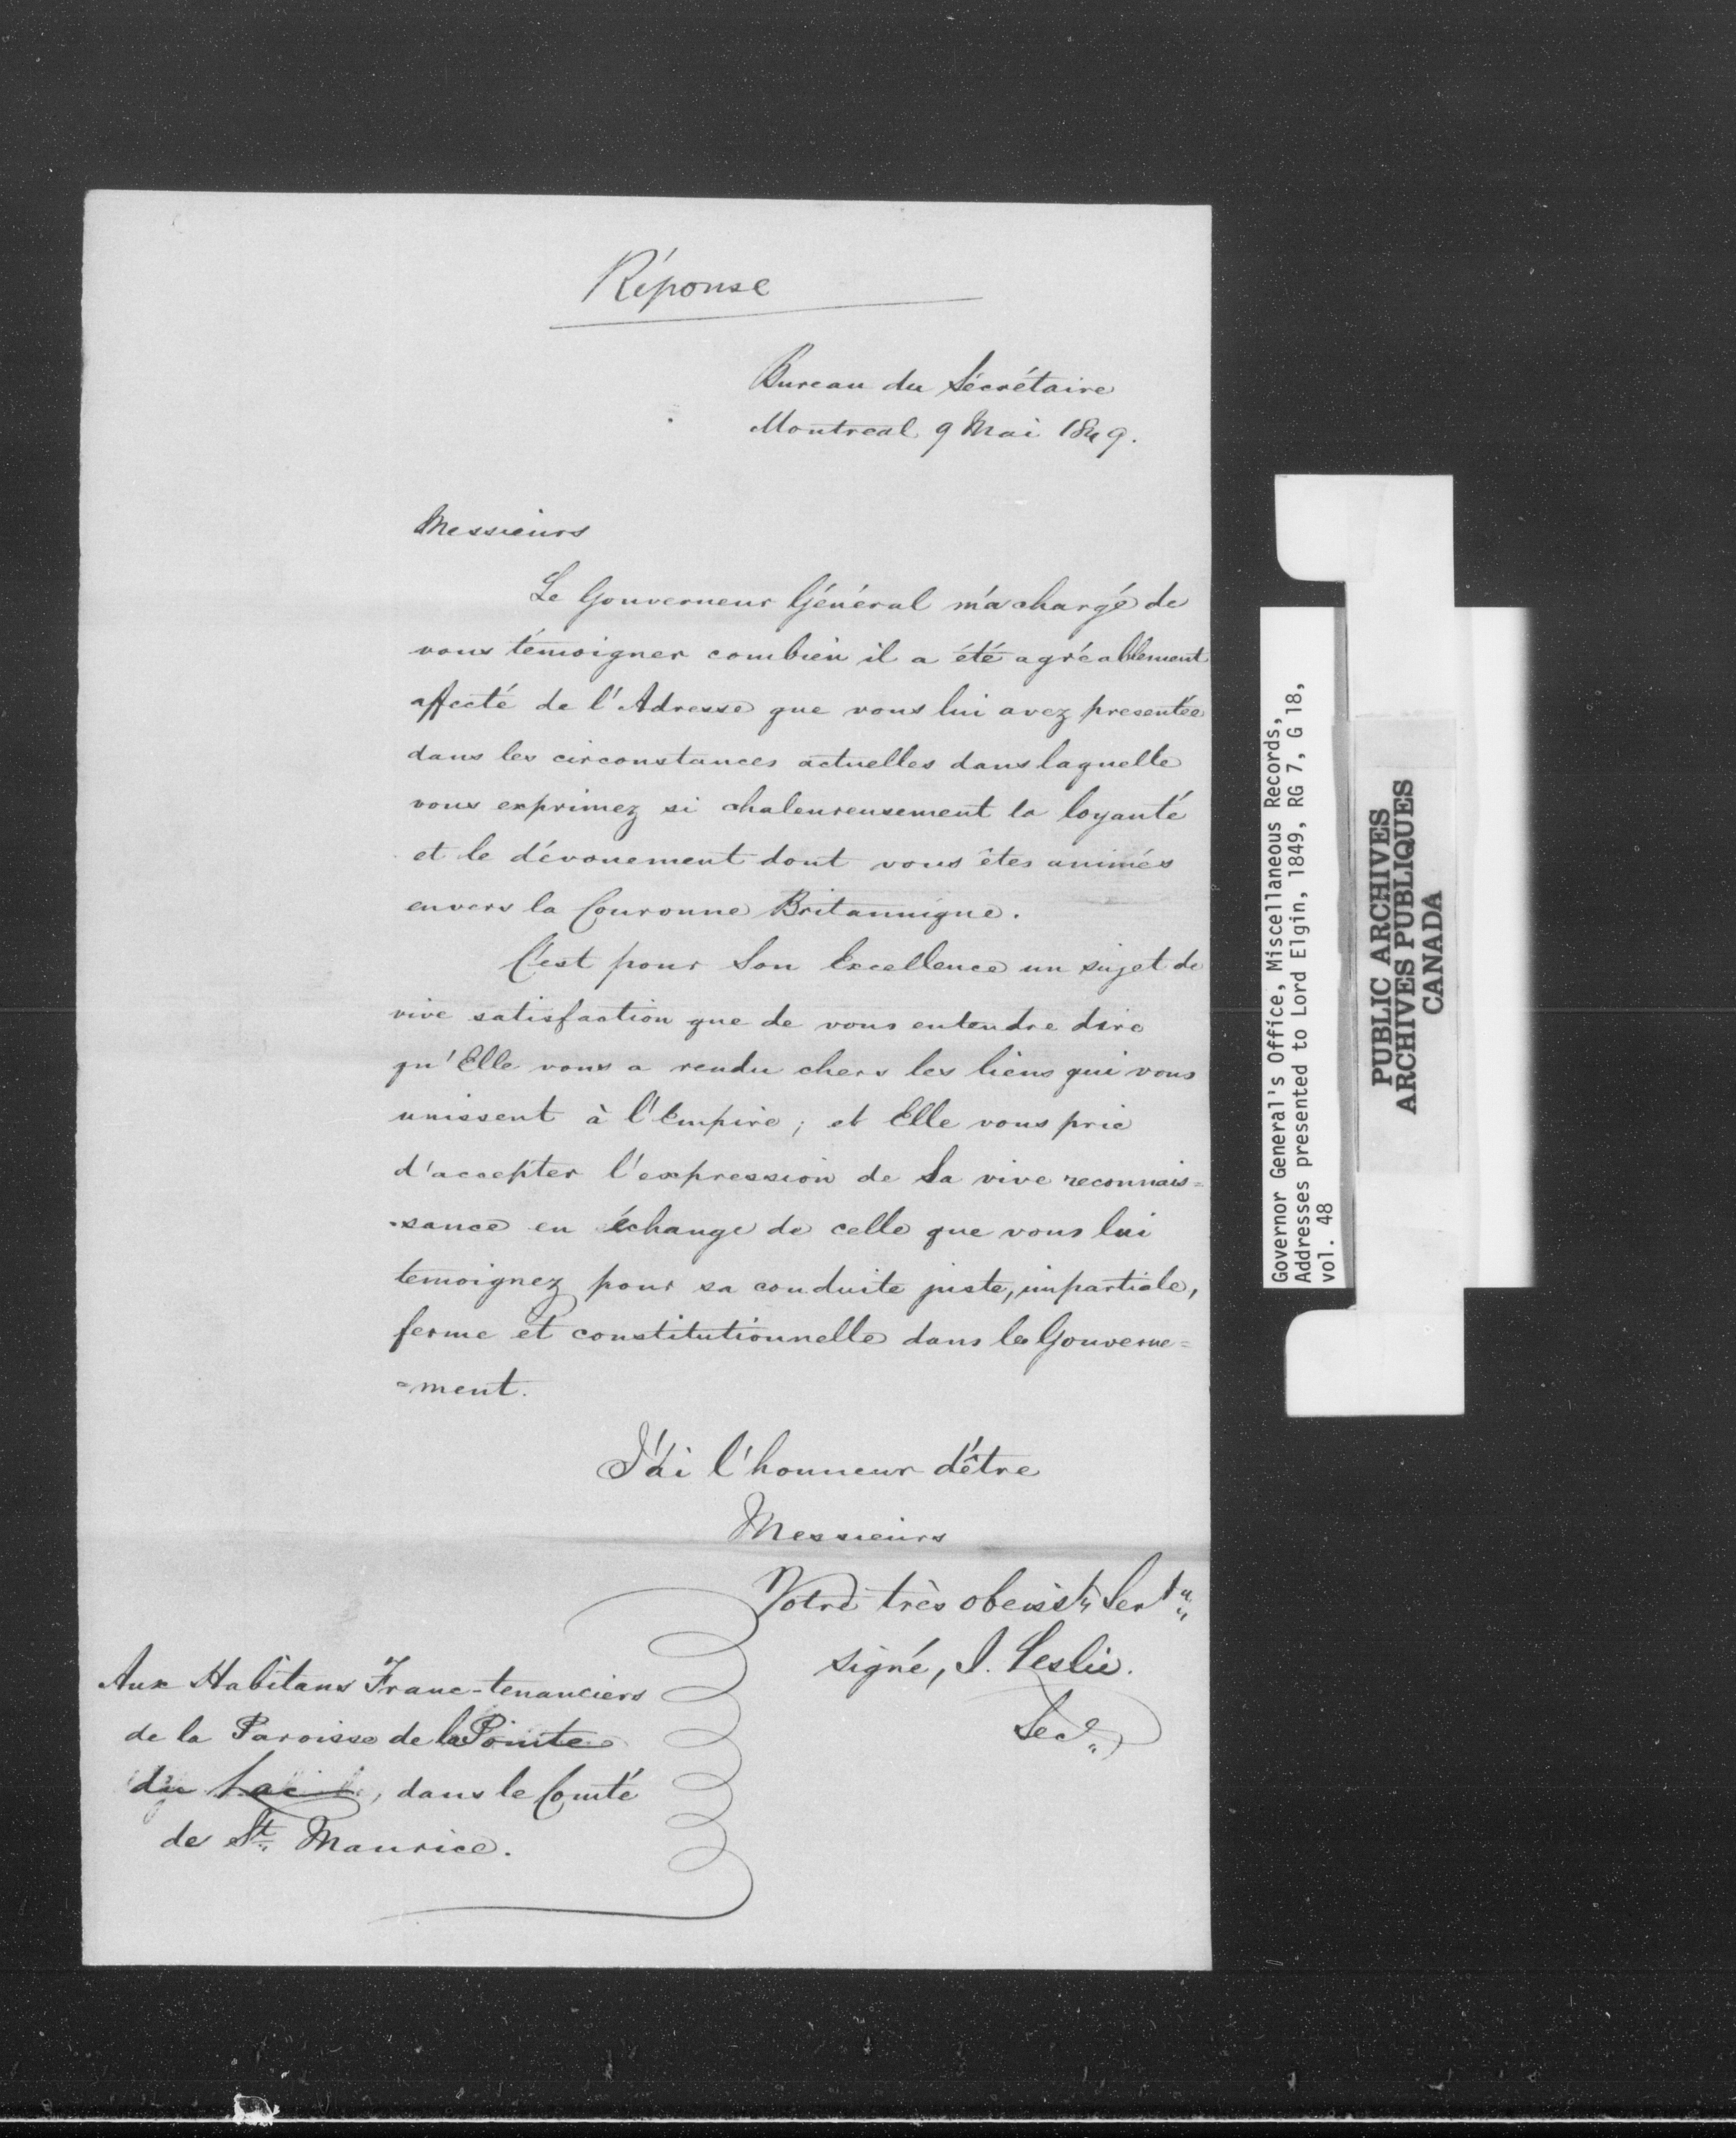 Réponse
Bureau du Sécrétaire
Montreal 9 Mai 1849.
Messieurs
Le Gouverneur Général m'a chargé de
vous témoigner combien il a été agréablement
affecté de l'Adresse que vous lui avez presentée
dans les circonstances actuelles dans laquelle
vous exprimez si chaleureusement la loyauté
et le dévouement dont vous êtes animés
envers la Couronne Britannique.
C'est pour Son Excellence un sujet de
vive satisfaction que de vous entendre dire
qu'Elle vous a rendu chers les liens qui vous
unissent à l'Empire; et Elle vous prie
d'accepter l'expression de Sa vive reconnais=
=sance en échange de celle que vous lui
temoignez pour sa conduite juste, impartiale,
ferme et constitutionnelle dans le Gouverne=
=ment.
J'ai l'honneur d'être
Messieurs
Votre très obeisst. Sert.
signé, J. Leslie.
Secr.
Aux Habitans Franc-tenanciers
de la Paroisse de la Pointe
du Lac, dans le Comté
de St. Maurice.
Governor General's Office, Miscellaneous Records,
Addresses presented to Lord Elgin, 1849, RG 7, G 18,
vol. 48
PUBLIC ARCHIVES
ARCHIVES PUBLIQUES
CANADA